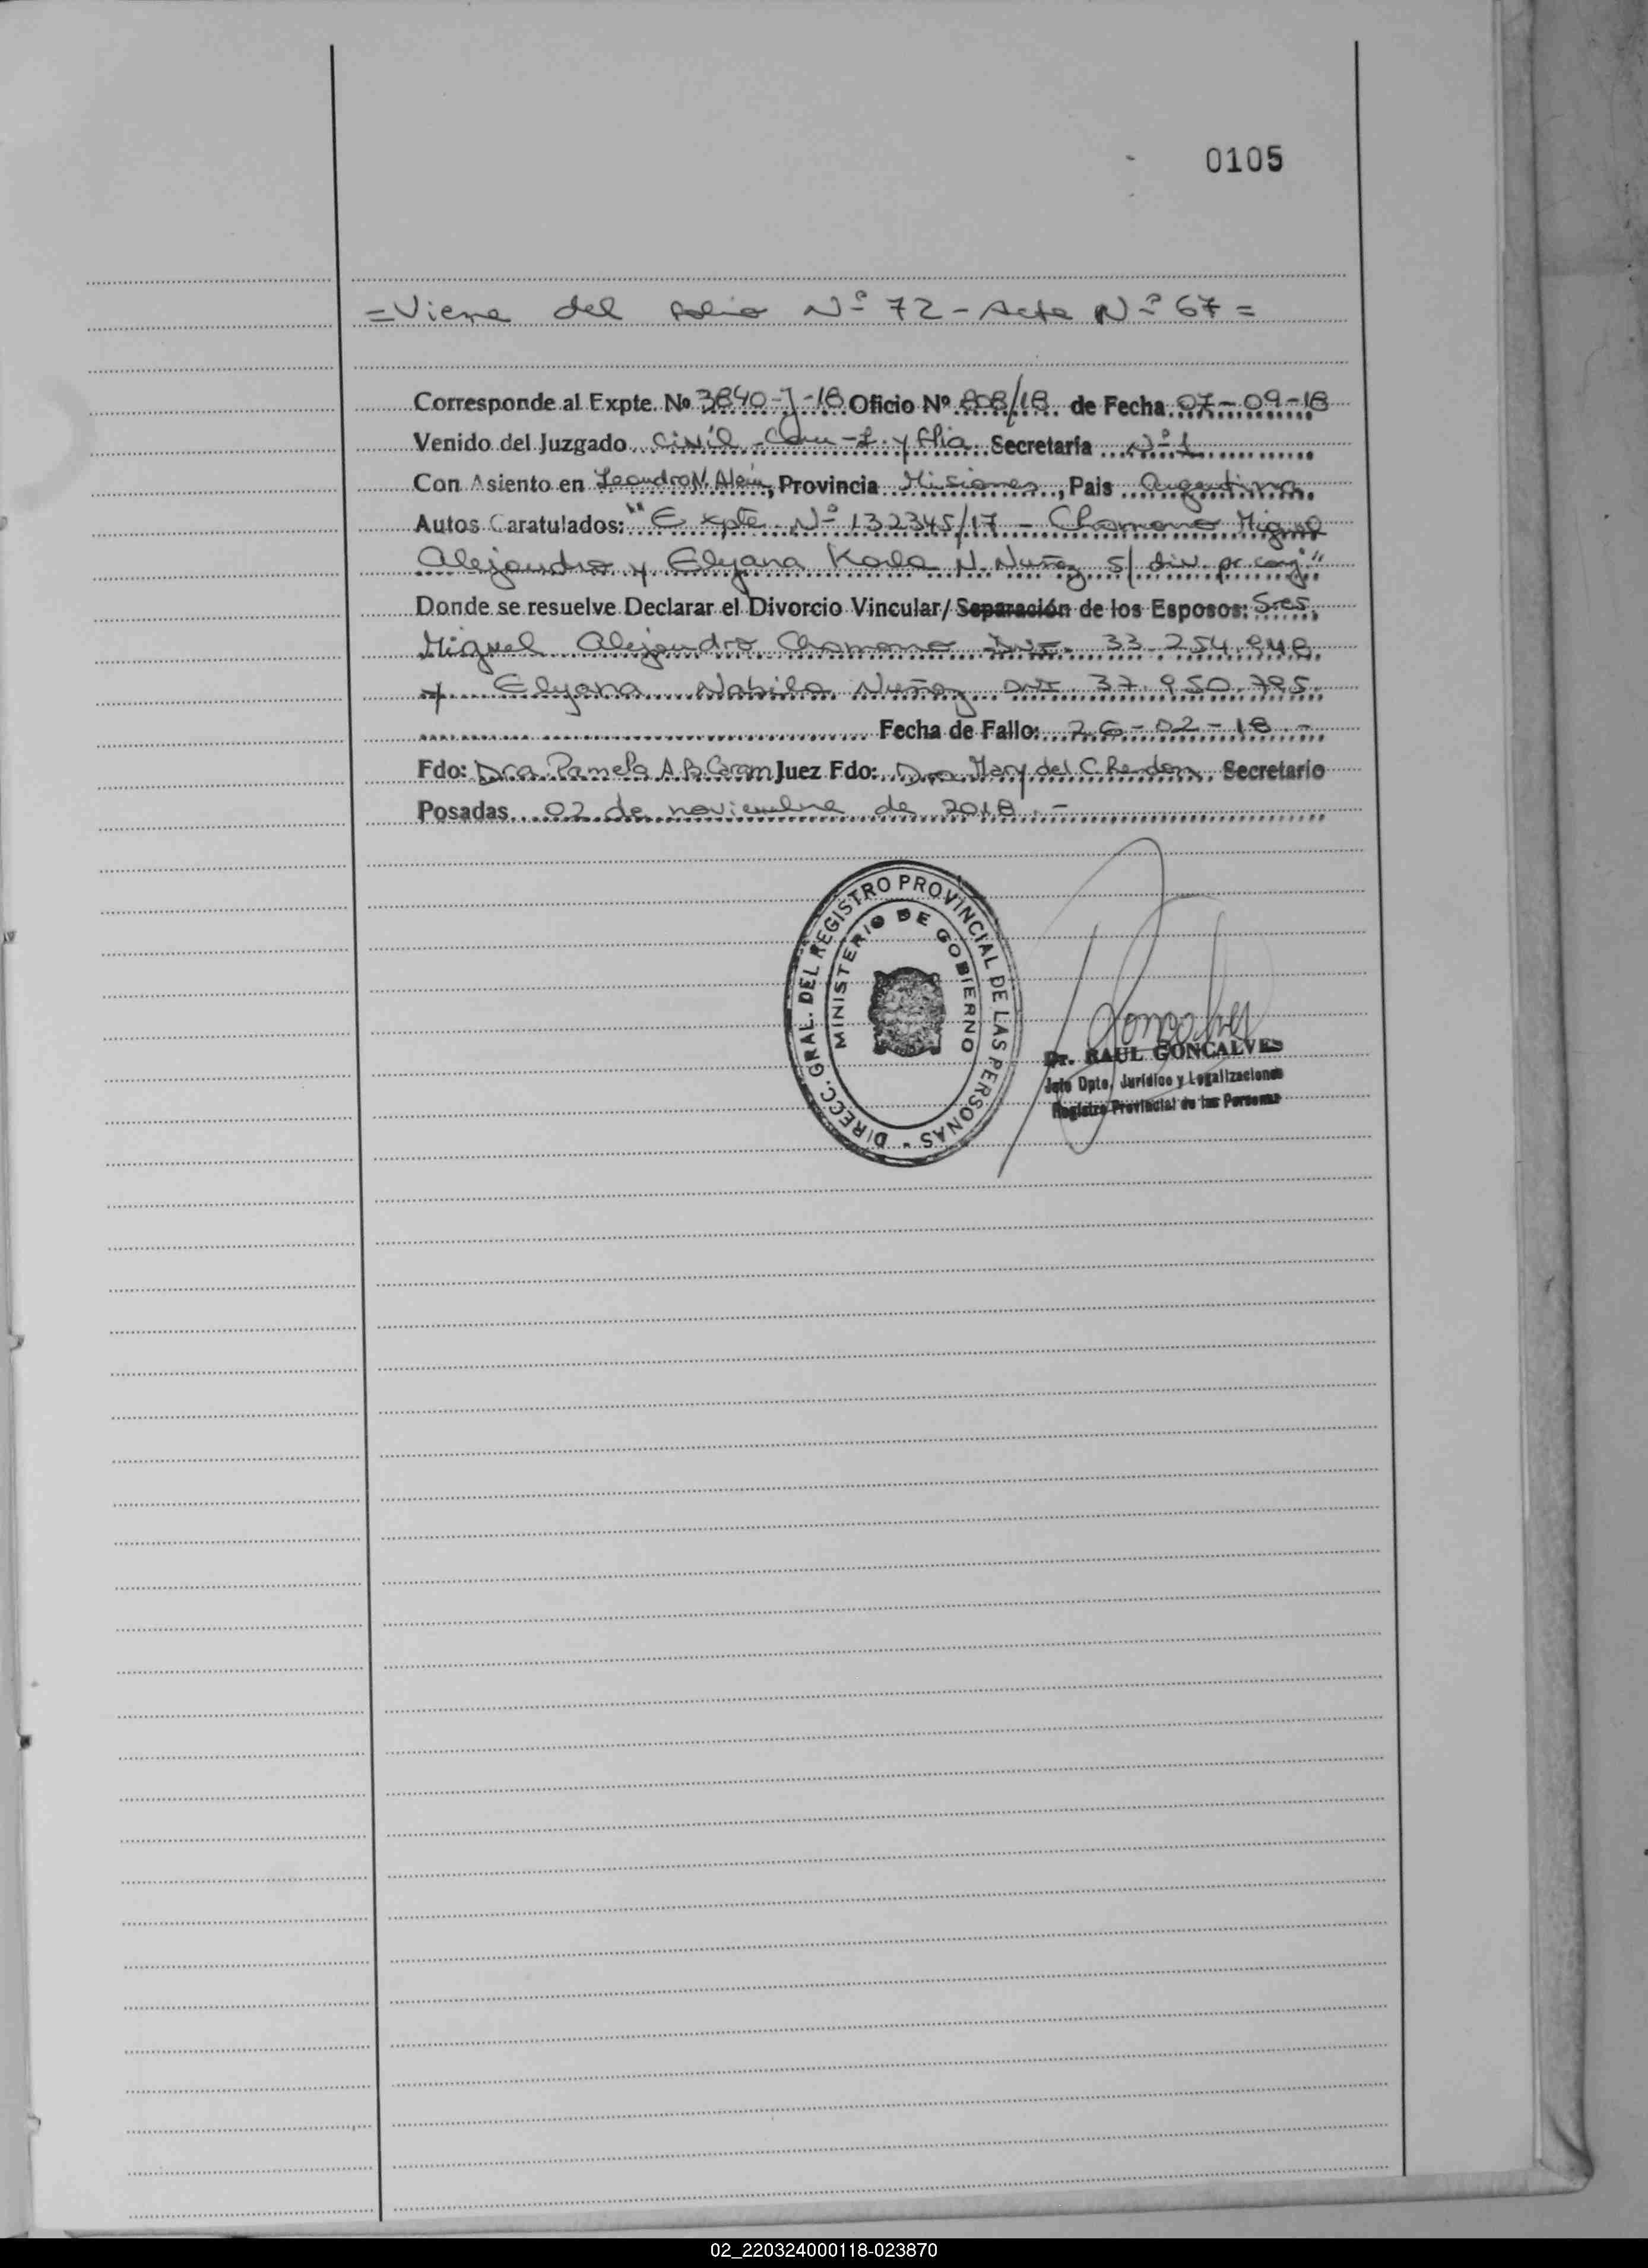 0105
=Viene del folio Nº 72 - Acta Nº 67=
Corresponde al Expte. Nº 3840-J-18 Oficio Nº 808/18 de Fecha 07-09-18
Venido del Juzgado Civil - Com - L. y flia. Secretaría Nº 1
Con Asiento en Leandro N. Alem, Provincia Misiones, Pais Argentina.
Autos Caratulados: "Expte. Nº 132345/17 - Chamorro Miguel
Alejandro y Elyana Karla N. Nuñez s/ div. pr. conj."
Donde se resuelve Declarar el Divorcio Vincular/Separación de los Esposos: Sres.
Miguel Alejandro Chamorro DNI. 33.254.848
y Elyana Nabila Nuñez DNI. 37.950.795.
Fecha de Fallo: 26-02-18.-
Fdo: Dra. Pamela A.B. Juez Fdo: Dra. Mary del C. Secretario
Posadas 02 de noviembre de 2018.-
DIRECC. GRAL. DEL REGISTRO PROVINCIAL DE LAS PERSONAS -
MINISTERIO DE GOBIERNO
Dr. RAUL GONCALVES
Jefe Dpto. Jurídico y Legalizaciones
Registro Provincial de las Personas
02_220324000118-023870